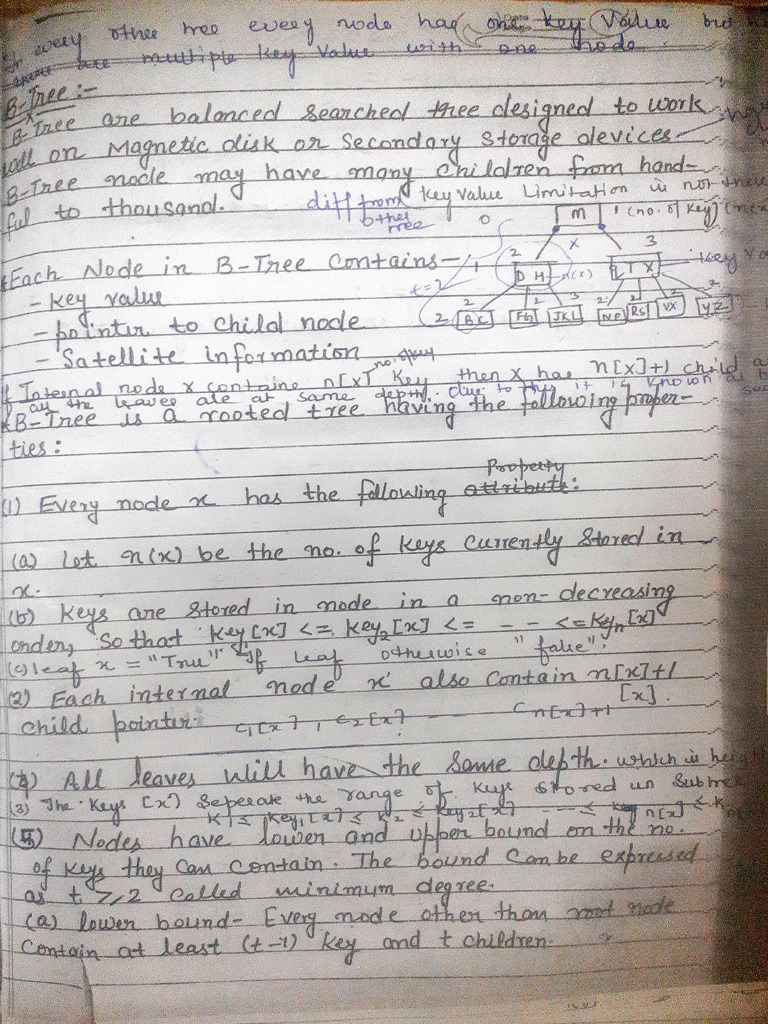 every other tree every node has one key Value but
are multiple key Value with one node.
B-Tree :-
B-Tree are balanced searched tree designed to work
well on Magnetic disk or Secondary Storage devices
B-Tree node may have many children from hand-
ful to thousand.
diff from other tree
key value Limitation is not there
0 M 1 (no. of key)
x
Each Node in B-Tree Contains -
1 2 D H n(x) 3 Q T X key
t=2
- key value
- pointer to child node
2 2 B C 2 F G 3 JKL 2 N P 2 RS 2 VX 2 YZ
- Satellite information
If Internal node x containe n[x] no. of key Key then x has n[x]+1 child
all the leaves are at same depth. due to this it is known as
* B-Tree is a rooted tree having the following proper-
ties :
(1) Every node x has the following attribute Property :
(a) Let n(x) be the no. of keys currently stored in
x.
(b) Keys are stored in node in a non-decreasing
order, So that key[x] <= key2[x] <= - - <= keyn[x]
(c) leaf x = "True" If leaf otherwise "false".
(2) Each internal node x also contain n[x]+1
child pointer c1[x], c2[x] --- cn[x]+1 [x].
(4) All leaves will have the same depth. which is
(3) The Keys [x] Seperate the range of keys stored in
K1 ≤ key1[x] ≤ K2 ≤ key2[x] --- ≤ key n[x] ≤
(5) Nodes have lower and upper bound on the no.
of keys they can contain. The bound can be expressed
as t ≥ 2 called minimum degree.
(a) lower bound - Every node other than root node
contain at least (t-1) key and t children.